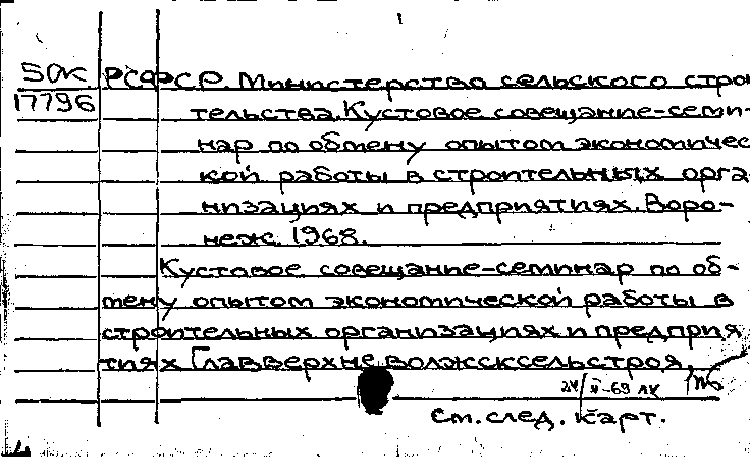 50к РСФСР. Министерство сельского строи
17796 тельства. Кустовое совещание-семи-
нар по обмену опытом экономичес
кой работы в строительных орга
низациях и предприятиях. Воро-
неж. 1968.
Кустовое совещание-семинар по об-
мену опытом экономической работы в
строительных организациях и предприя
тиях Главверхневолжсксельстроя,
24/II-69 лк
См. след. карт.